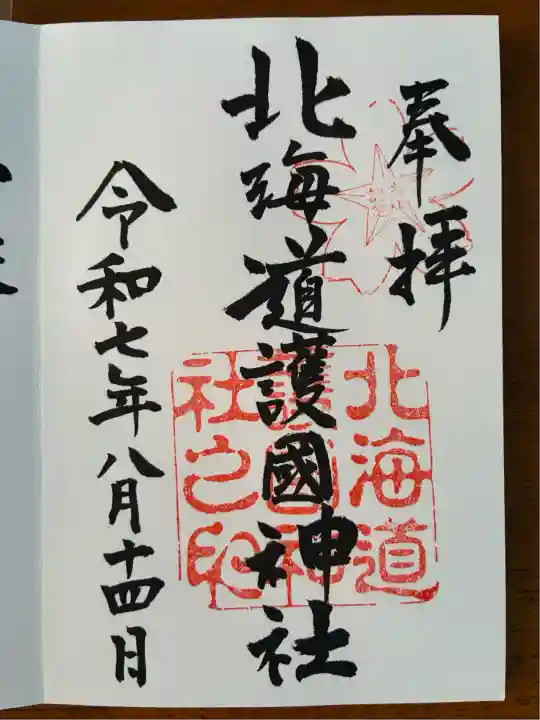 奉拝
北海道護國神社
北海道
護國神
社之印
令和七年八月十四日